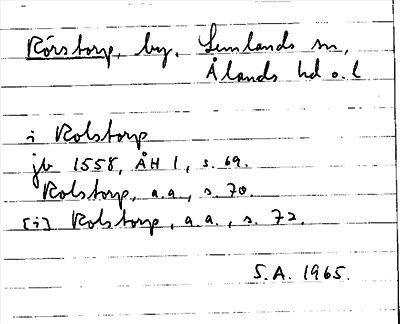 Rörstorp, by, Lemlands sn,
Ålands hd o. l
i Rolstorp
jb 1558, ÅH 1, s. 69.
Rolstorp, a.a., s. 70.
[i] Rolstorp, a.a., s. 72.
S.A. 1965.